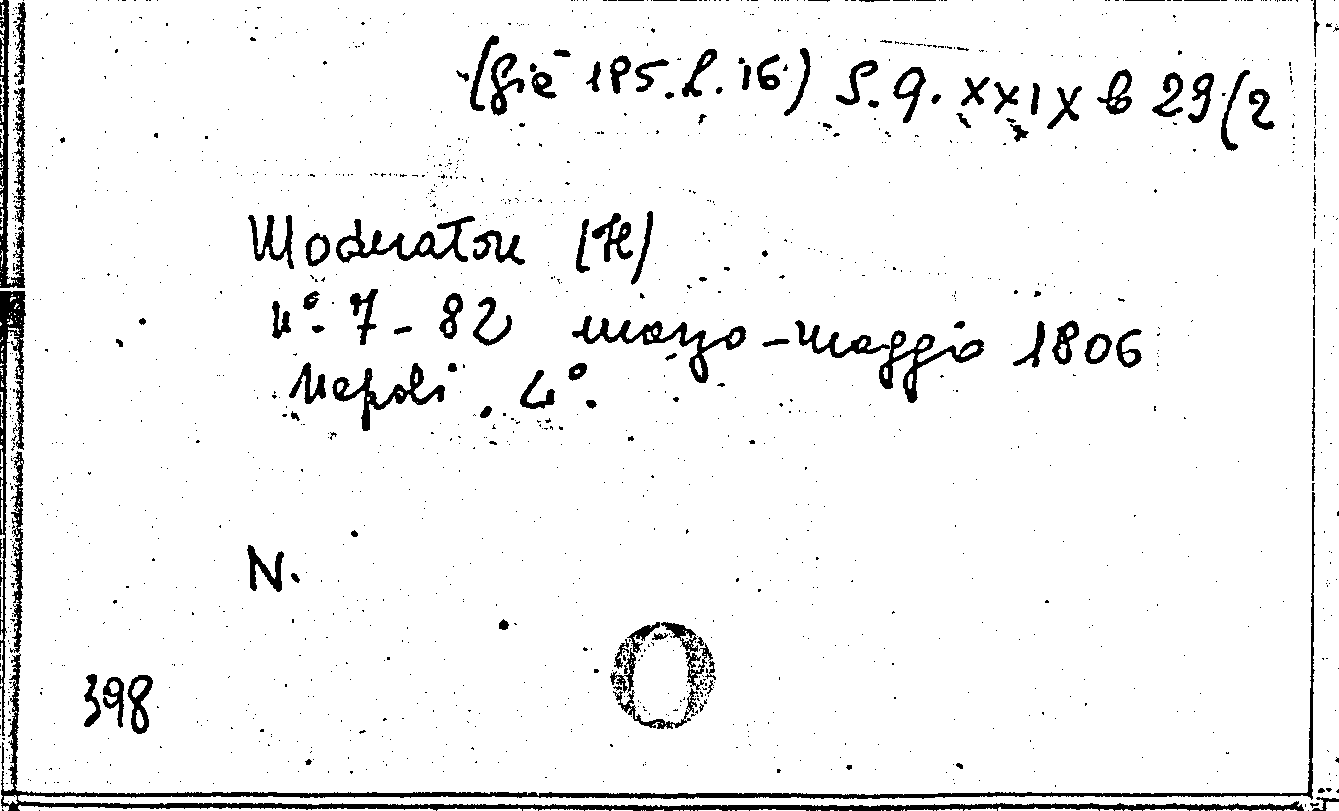 (già 185.L.16) S.Q. XXIX B 29(2
Moderatore (Il)
n°. 7-82 marzo-maggio 1806
Napoli. 4°.
N.
398